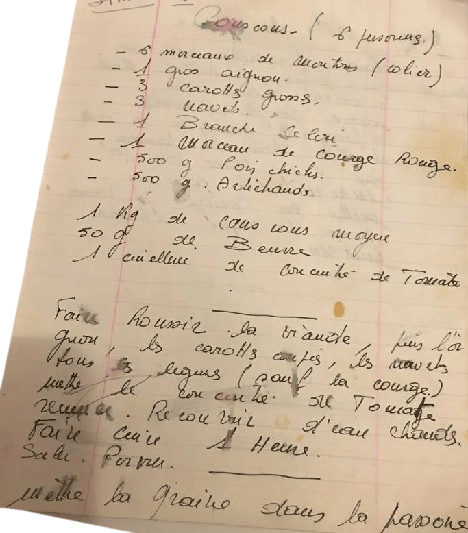 Couscous - ( 6 personnes )
- 6 morceaux de moutons ( colier )
- 1 gros oignon.
- 3 carotts grosses.
- 3 navets.
- 1 Branche Celeri
- 1 morceau de courge Rouge.
- 500 g Pois chichs.
- 500 g. Artichauds
1 Kg de couscous moyen
50 g de Beurre
1 cuillere de concentré de Tomate
Faire Roussir la viande, puis l'oi
gnon, les carotts coupés, les navets
tous les legums ( sauf la courge )
mettre le concentré de Tomate
remuer. Recouvrir d'eau chaude.
Faire cuire 1 Heure.
Saler. Poivrer.
mettre la graine dans la passoire